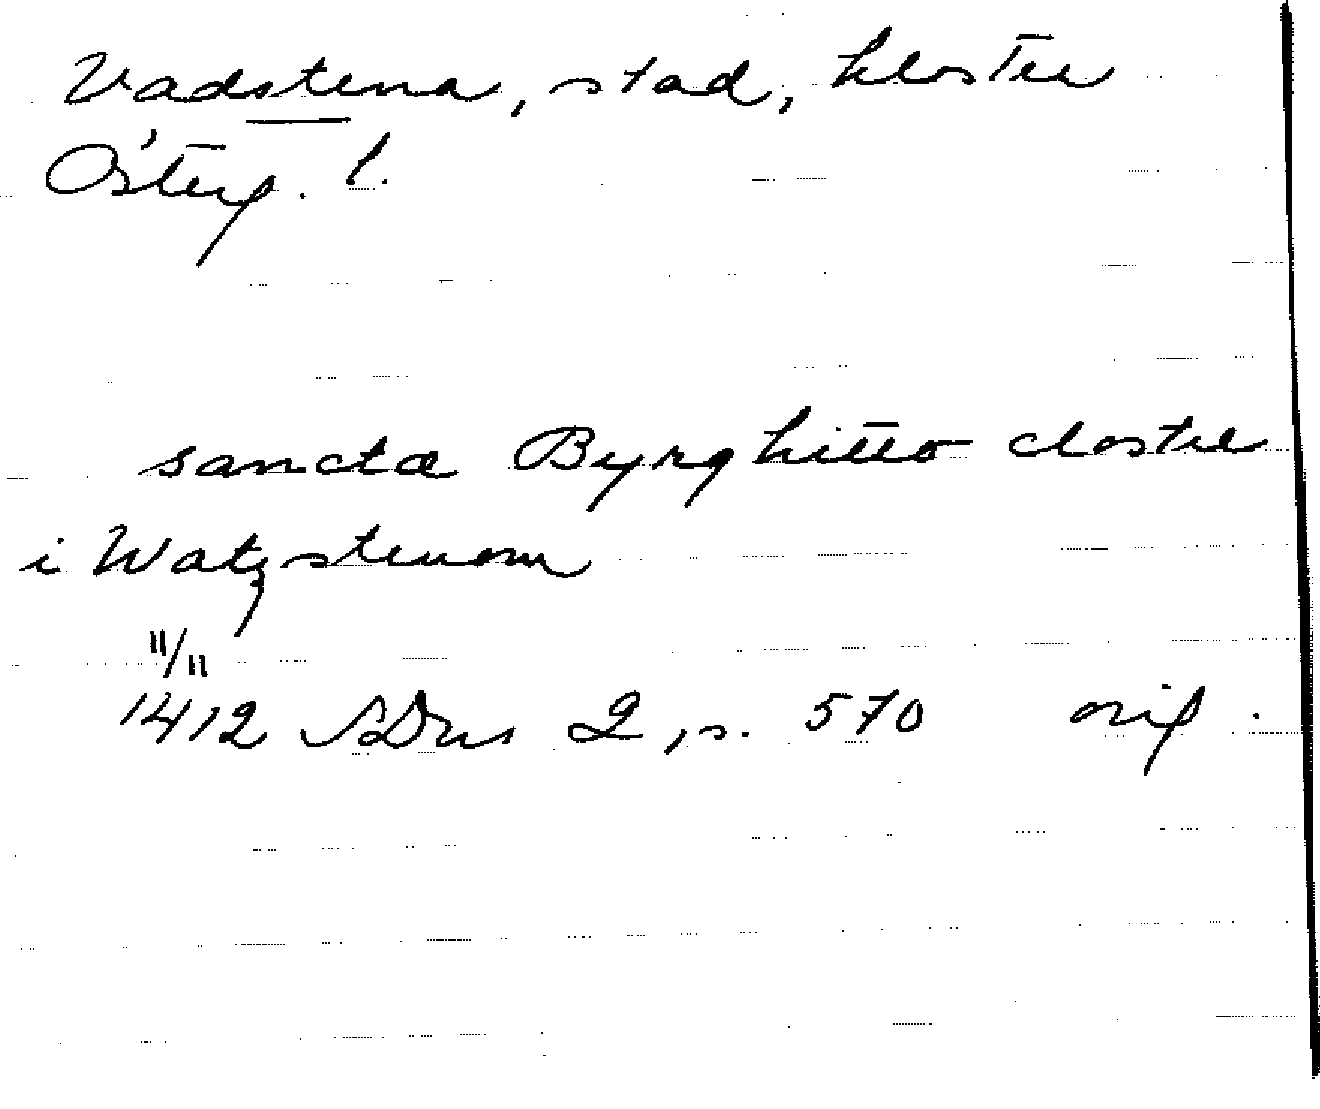 Vadstena, stad, kloster
Österg. l.
sancta Byrghitto closter
i Watzstenom
11/11
1412 SDns 2, s. 570 orig.